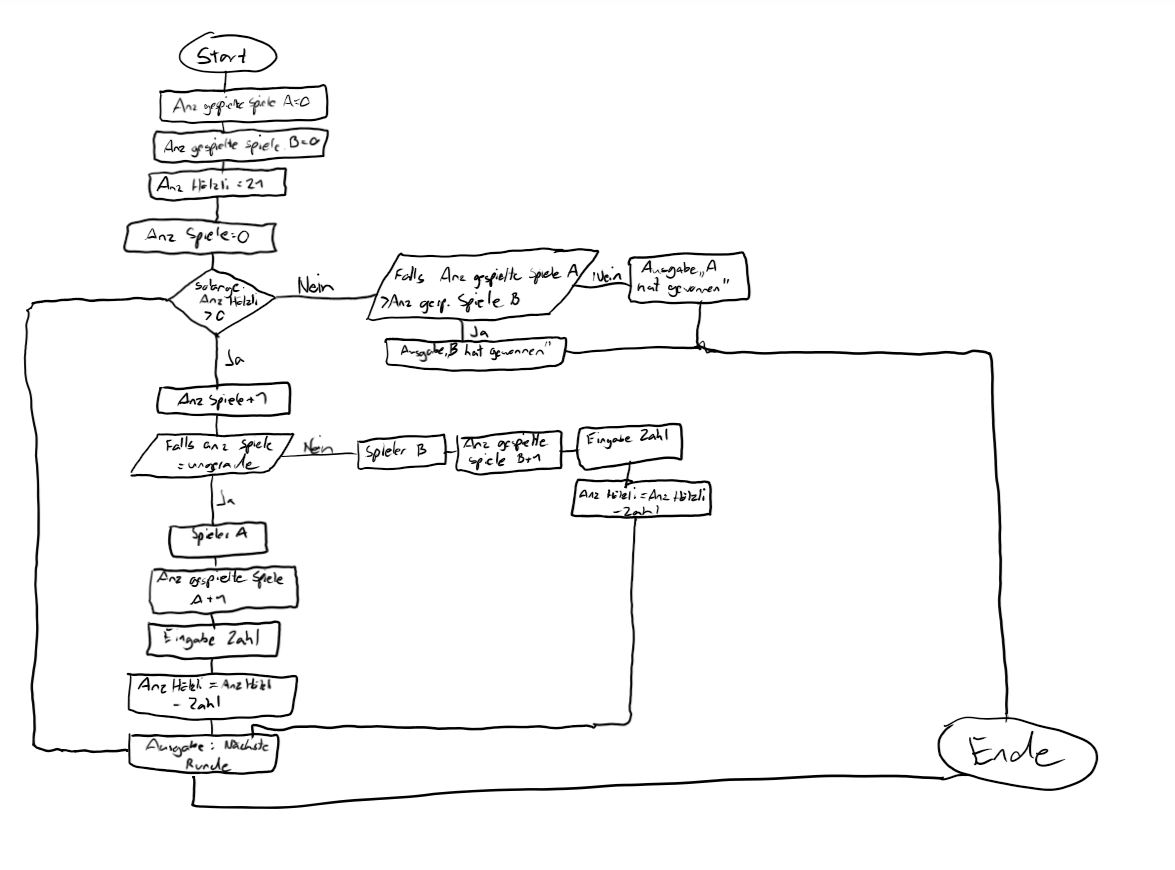 Start
Anz gespielte Spiele A=0
Anz gespielte Spiele B=0
Anz Hölzli = 21
Anz Spiele=0
solange
Anz Hölzli
>0
Nein
Falls Anz gespielte Spiele A
>Anz gesp. Spiele B
Nein
Ausgabe „A
hat gewonnen"
Ja
Ausgabe „B hat gewonnen"
Ja
Anz Spiele+1
Falls anz Spiele
=ungerade
Nein
Spieler B
Anz gespielte
Spiele B+1
Eingabe Zahl
Anz Hölzli = Anz Hölzli
- Zahl
Ja
Spieler A
Anz gespielte Spiele
A+1
Eingabe Zahl
Anz Hölzli = Anz Hölzli
- Zahl
Ausgabe: Nächste
Runde
Ende